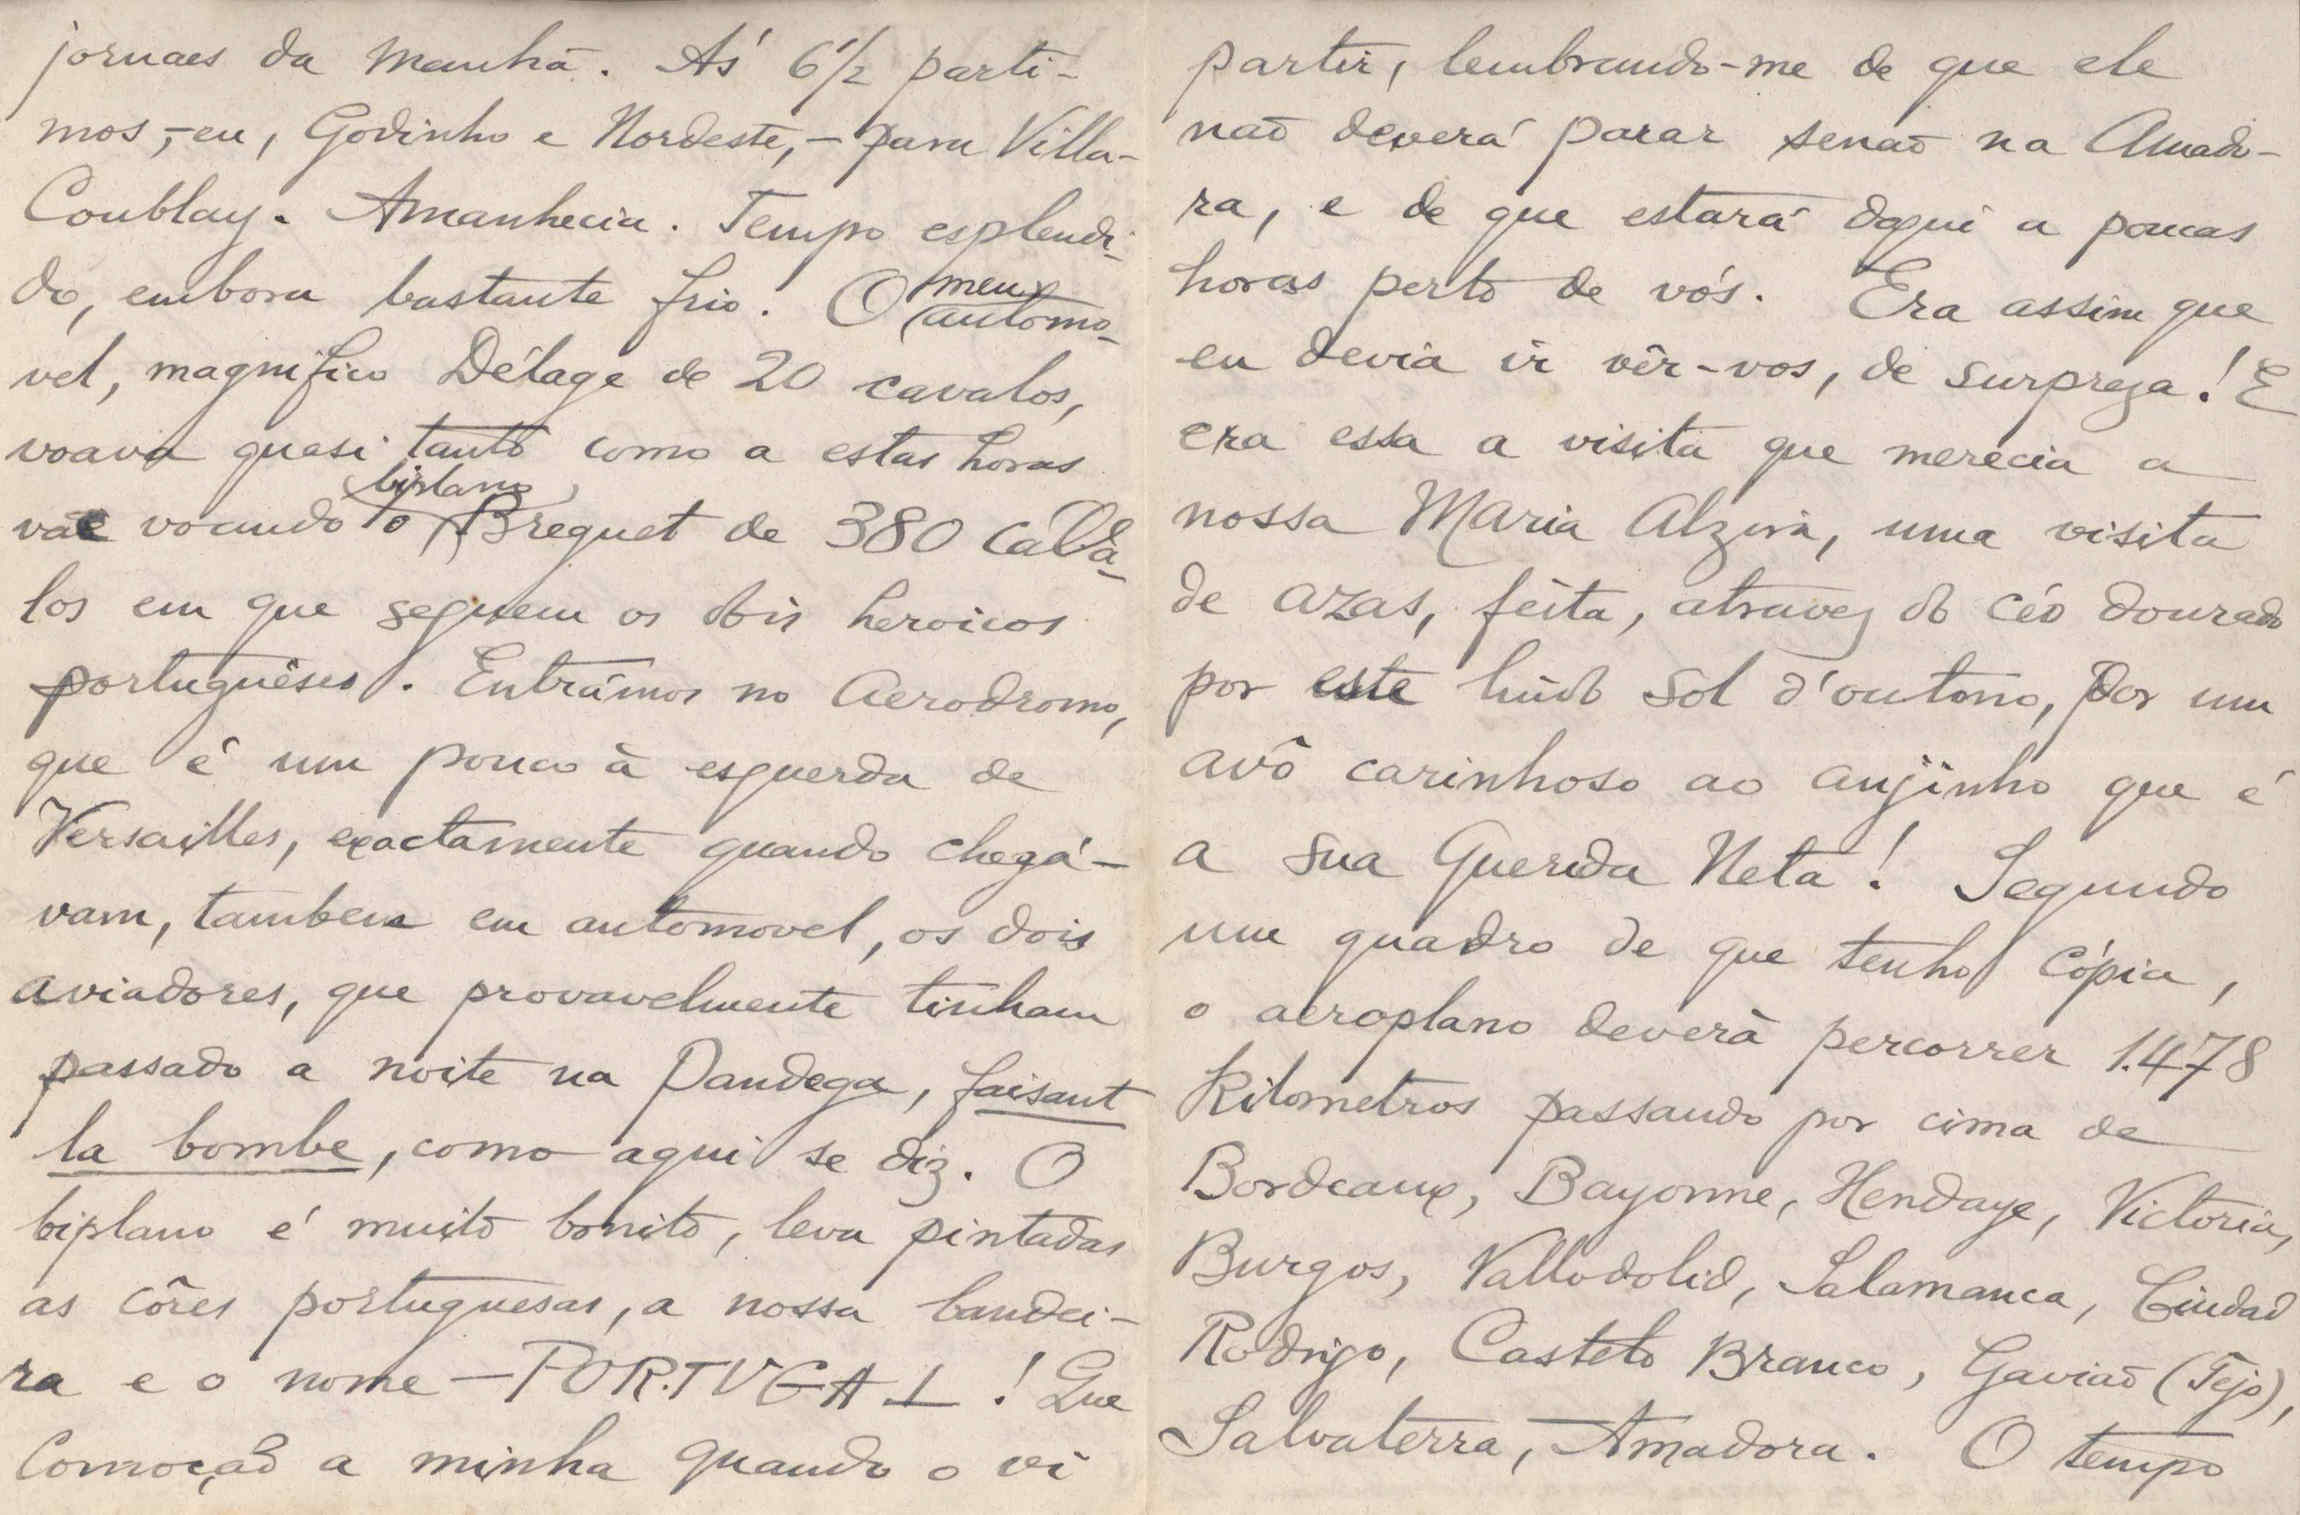 jornaes da manhã. Ás 6 1/2 parti-
mos, - eu, Godinho e Nordeste, - para Villa-
Coublay. Amanhecia. Tempo esplendi-
do, embora bastante frio. O meu automo-
vel, magnifico Délage de 20 cavalos,
voava quasi tanto como a estas horas
vae voando o biplano Breguet de 380 cava-
los em que seguem os dois heroicos
portuguêses. Entrámos no Aerodromo,
que é um pouco à esquerda de
Versailles, exactamente quando chegá-
vam, tambem em automovel, os dois
aviadores, que provavelmente tinham
passado a noite na Pandega, faisant
la bombe, como aqui se diz. O
biplano é muito bonito, leva pintadas
as côres portuguesas, a nossa bandei-
ra e o nome - PORTUGAL! Que
Comoção a minha quando o vi
partir, lembrando-me de que ele
não deverá parar senão na Amado-
ra, e de que estará daqui a poucas
horas perto de vós. Era assim que
eu devia ir vêr-vos, de surpreza! E
era essa a visita que merecia a
nossa Maria Alzira, uma visita
de azas, feita, atravez do céo dourado
por este lindo sol d'outono, por um
avô carinhoso ao anjinho que é
a sua Querida Neta! Segundo
um quadro de que tenho cópia,
o aeroplano deverá percorrer 1.478
Kilometros passando por cima de
Bordeaux, Bayonne, Hendaye, Victoria,
Burgos, Valladolid, Salamanca, Ciudad
Rodrigo, Castelo Branco, Gavião (Tejo),
Salvaterra, Amadora. O tempo